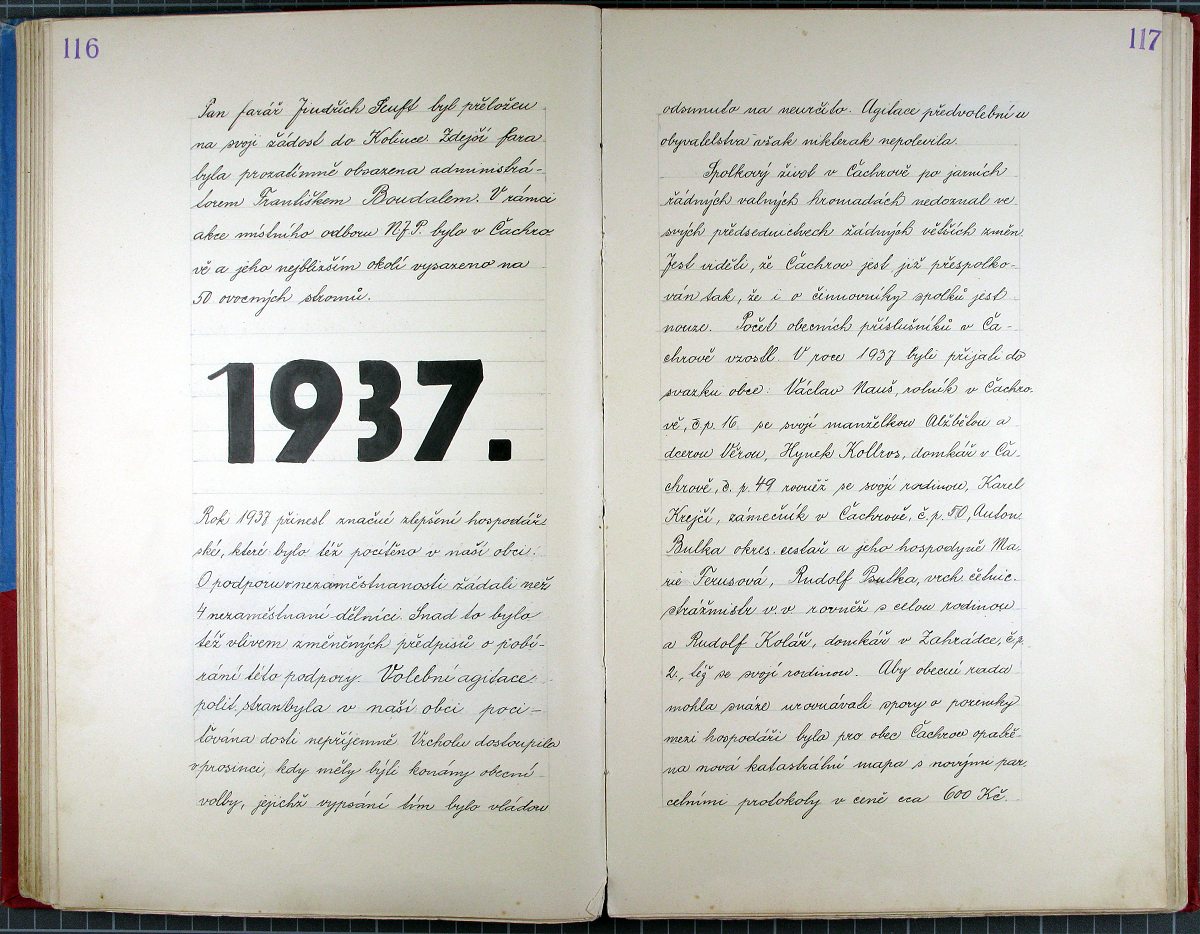 116
Pan farář Jindřich Seuft byl přeložen
na svoji žádost do Kolince. Zdejší fara
byla prozatimně obsazena administrá-
torem Františkem Boudalem. V rámci
akce místního odboru NJP. bylo v Čachro
vě a jeho nejbližším okolí vysazeno na
50 ovocných stromů.
1937.
Rok 1937 přinesl značné zlepšení hospodář
ské, které bylo též pocítěno v naší obci.
O podporu v nezaměstnanosti žádali než
4 nezaměstnaní dělníci. Snad to bylo
též vlivem změněných předpisů o pobí-
rání této podpory. Volební agitace
polit. stran byla v naší obci poci-
ťována dosti nepříjemně. Vrcholu dostoupila
v prosinci, kdy měly býti konány obecní
volby, jejichž vypsání tím bylo vládou
117
odsunuto na neurčito. Agitace předvolební u
obyvatelstva však nikterak nepolevila.
Spolkový život v Čachrově po jarních
řádných valných hromadách nedoznal ve
svých předsednictvech žádných větších změn
Jest viděti, že Čachrov jest již přespolko-
ván tak, že i o činovníky spolků jest
nouze. Počet obecních příslušníků v Ča-
chrově vzostl. V roce 1937 byli přijati do
svazku obce: Václav Nauš, rolník v Čachro.
vě, č.p. 16. se svojí manželkou Alžbětou a
dcerou Věrou, Hynek Kollros, domkář v Ča-
chrově, č. p. 49 rovněž se svojí rodinou, Karel
Krejčí, zámečník v Čachrově, č. p. 50, Anton.
Bulka okres. cestář a jeho hospodyně Ma.
rie Terusová, Rudolf Psulka, vrch. četnic.
strážmistr v. v. rovněž s celou rodinou
a Rudolf Kolář, domkář v Zahrádce, č.p.
2., též se svojí rodinou. Aby obecní rada
mohla snáze urovnávati spory o pozemky
mezi hospodáři byla pro obec Čachrov opatře-
na nová katastrální mapa s novými par
celními protokoly v ceně cca 600 Kč.